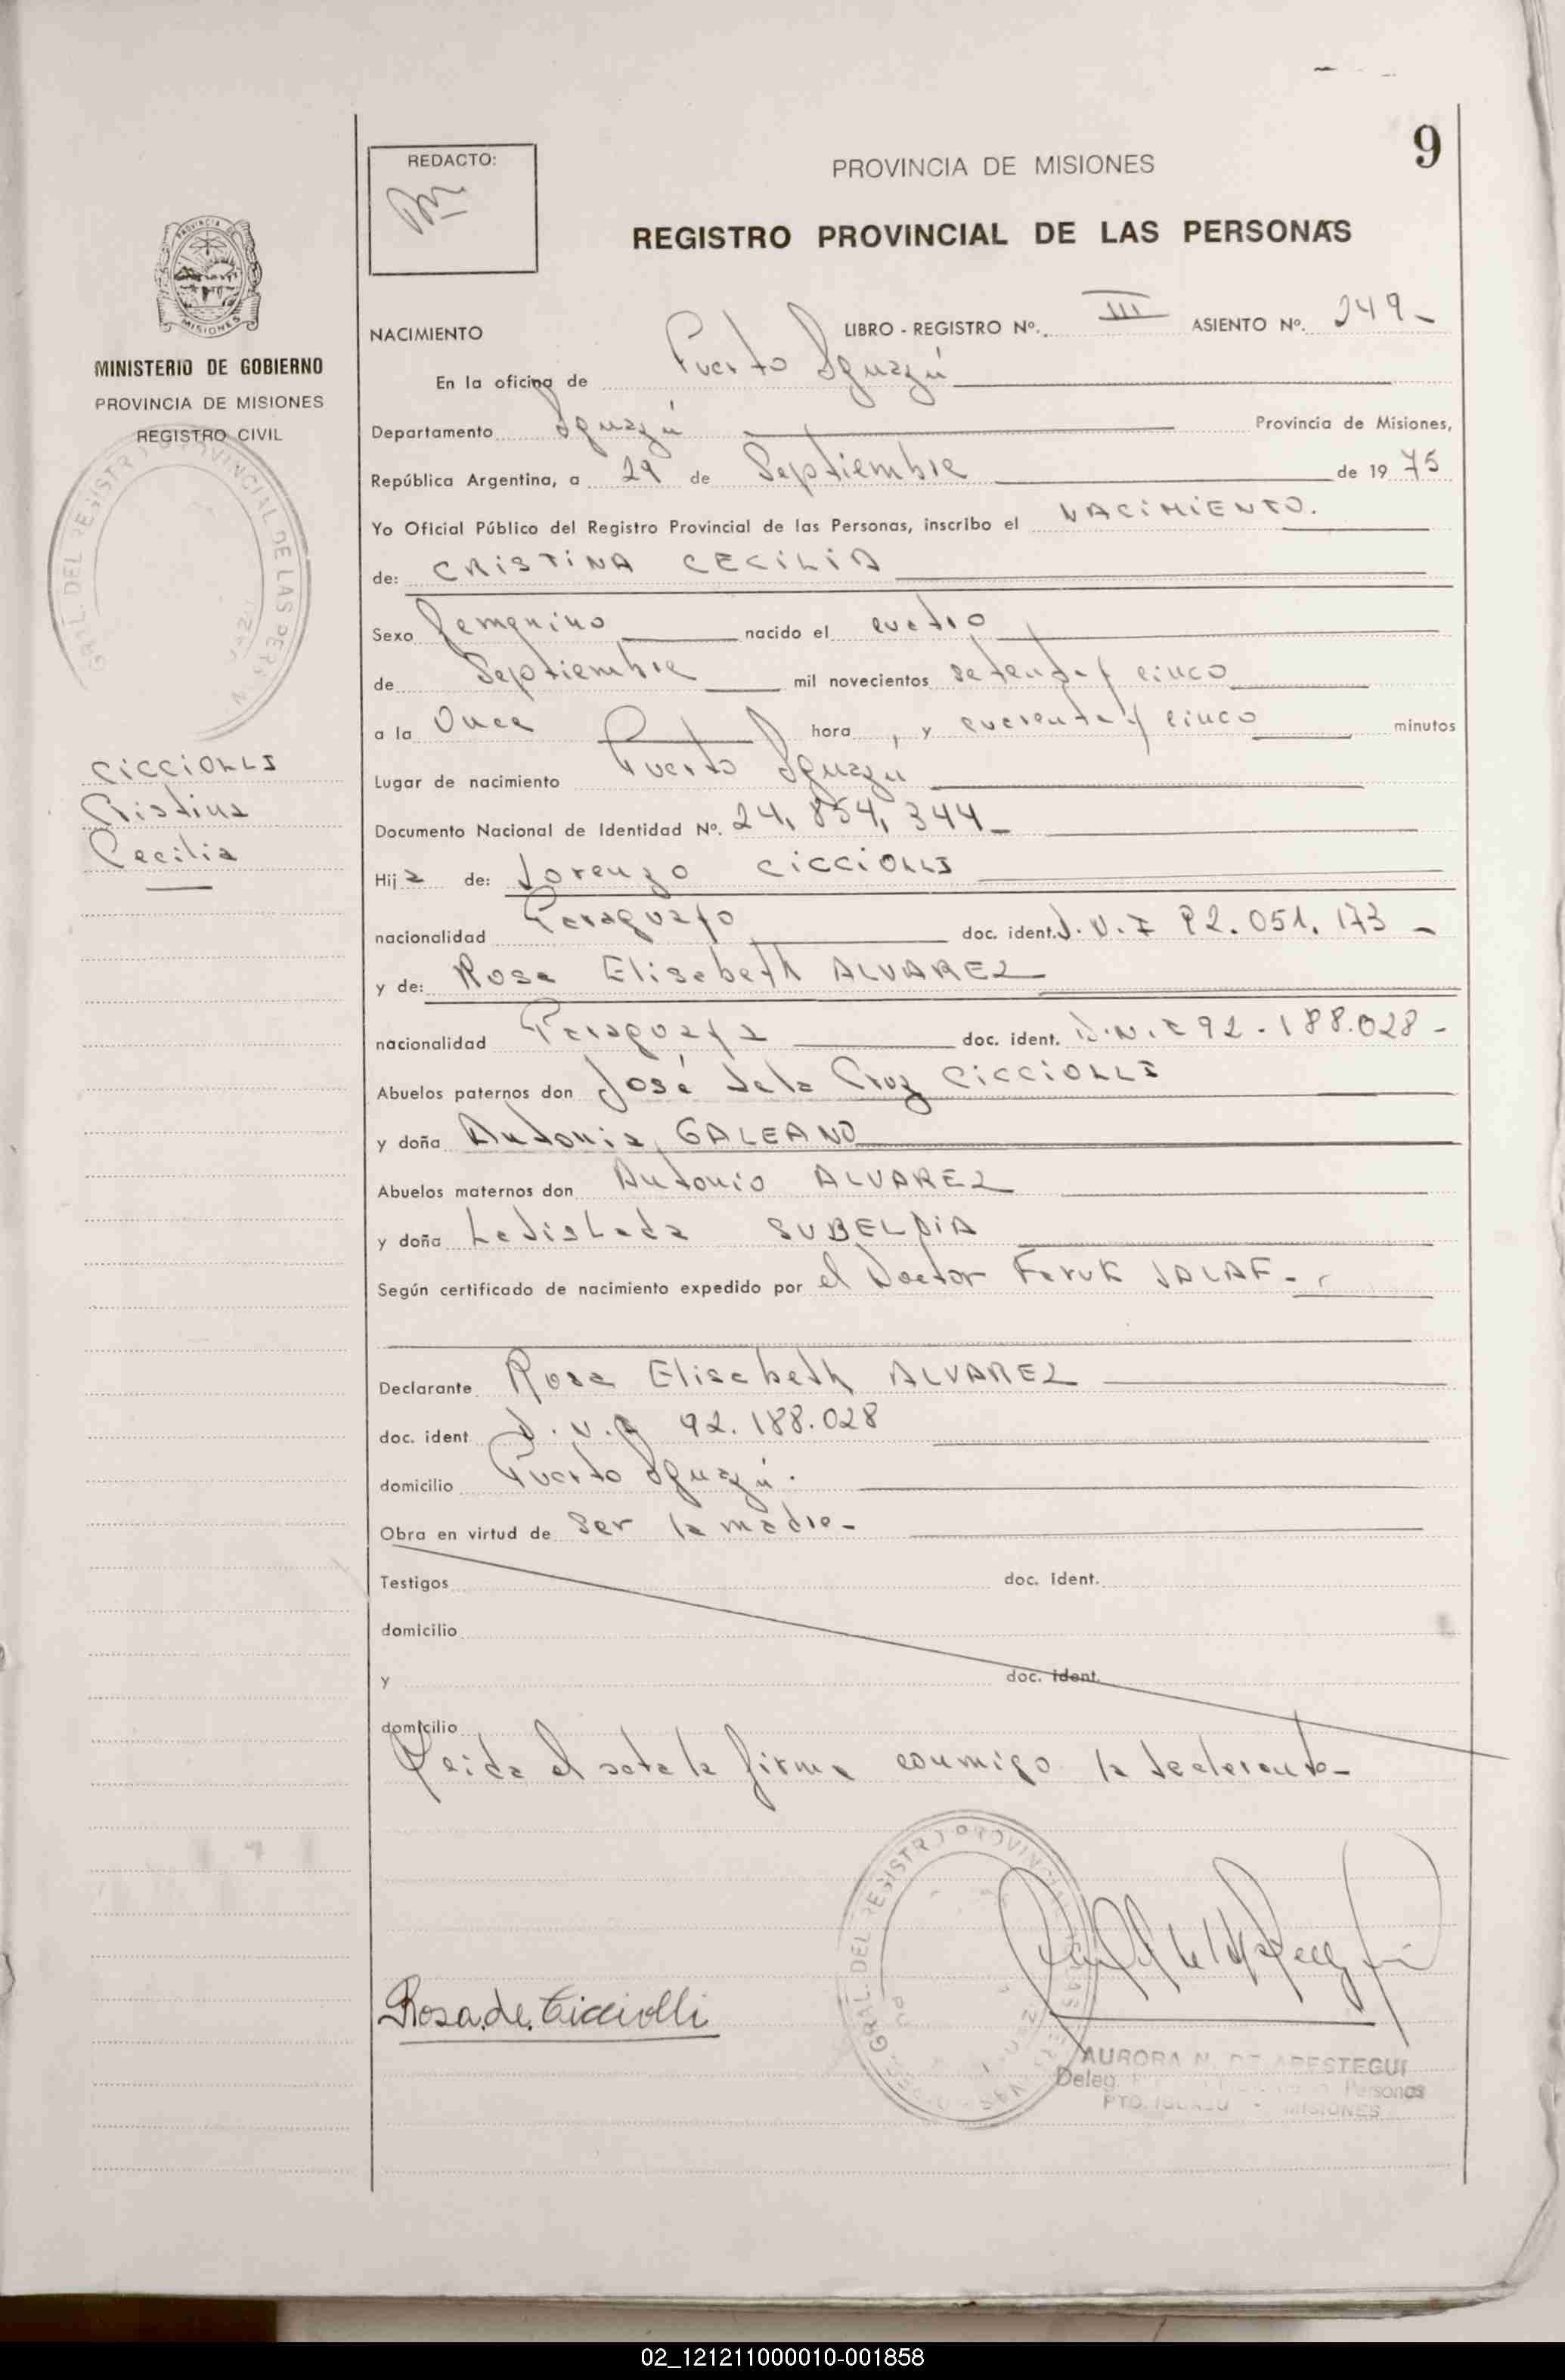 9
REDACTO:
PROVINCIA DE MISIONES
REGISTRO PROVINCIAL DE LAS PERSONAS
PROVINCIA DE
MISIONES
MINISTERIO DE GOBIERNO
PROVINCIA DE MISIONES
REGISTRO CIVIL
GRAL. DEL REGISTRO PROVINCIAL DE LAS PERS
CICCIOLLI
Cristina
Cecilia
NACIMIENTO LIBRO - REGISTRO Nº. III ASIENTO Nº. 249-
En la oficina de Puerto Iguazú
Departamento Iguazú Provincia de Misiones,
República Argentina, a 29 de Septiembre de 1975
Yo Oficial Público del Registro Provincial de las Personas, inscribo el NACIMIENTO.
de: CRISTINA CECILIA
Sexo femenino nacido el cuatro
de Septiembre mil novecientos setenta y cinco
a la Once hora, y cuarenta y cinco minutos
Lugar de nacimiento Puerto Iguazu
Documento Nacional de Identidad Nº. 24,854,344-
Hija de: Lorenzo CICCIOLLI
nacionalidad Paraguayo doc. ident. D.N.I 92.051.173-
y de: Rosa Elisabeth ALVAREZ
nacionalidad Paraguaya doc. ident. D.N.I 92-188.028-
Abuelos paternos don José dela Cruz CICCIOLLI
y doña Antonia GALEANO
Abuelos maternos don Antonio ALVAREZ
y doña Ladislada SUBELDIA
Según certificado de nacimiento expedido por el Doctor Faruk JALAF-
Declarante Rosa Elisabeth ALVAREZ
doc. ident D.N.I 92.188.028
domicilio Puerto Iguazú.
Obra en virtud de Ser la madre-
Testigos doc. ident.
domicilio
y doc. ident.
domicilio
Leida el acta la firma conmigo la declarante-
GRAL. DEL REGISTRO PROVINCIAL
Rosa.de.Cicciolli
AURORA N. DE ARESTEGUI
Deleg. Personas
PTO. IGUAZU - MISIONES
02_121211000010-001858